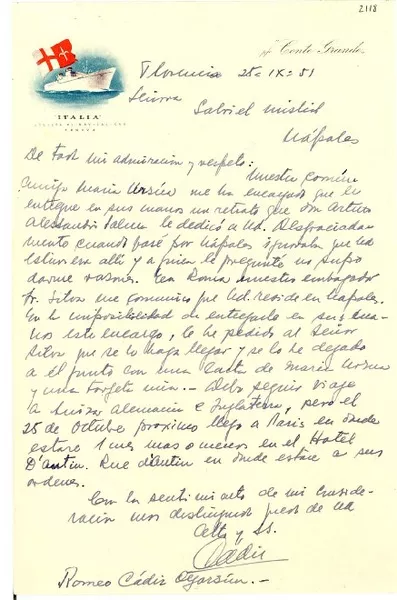 2118
"Conte Grande"
"ITALIA"
SOCIETÀ DI NAVIGAZIONE
GENOVA
Florencia 25-IX-51
Señora
Gabriel Mistral
Nápoles
De toda mi admiración y respeto: Nuestra común
amiga María Ursúa me ha encargado que le
entregue en sus manos un retrato que don Arturo
Alessandri Palma le dedicó a Ud. Desgraciada-
mente cuando pasé por Nápoles ignoraba que Ud
estuviera allí y a quien le pregunté no supo
darme razón. En Roma nuestro embajador
Sr. Silva me comunicó que Ud. reside en Nápoles.
En la imposibilidad de entregarlo en sus ma-
nos este encargo, le he pedido al Señor
Silva que se lo haga llegar y se lo he dejado
a él junto con una carta de María Ursúa
y una tarjeta mía.- Debo seguir viaje
a Suiza Alemania e Inglaterra, pero el
25 de Octubre próximo llego a Paris en donde
estaré 1 mes mas o menos en el Hotel
D'Antin. Rue d'Antin en donde estaré a sus
ordenes.
Con los sentimientos de mi conside-
ración mas distinguida quedo de Ud
Atto y SS.
Cádiz
Romeo Cádiz Oyarzún.-